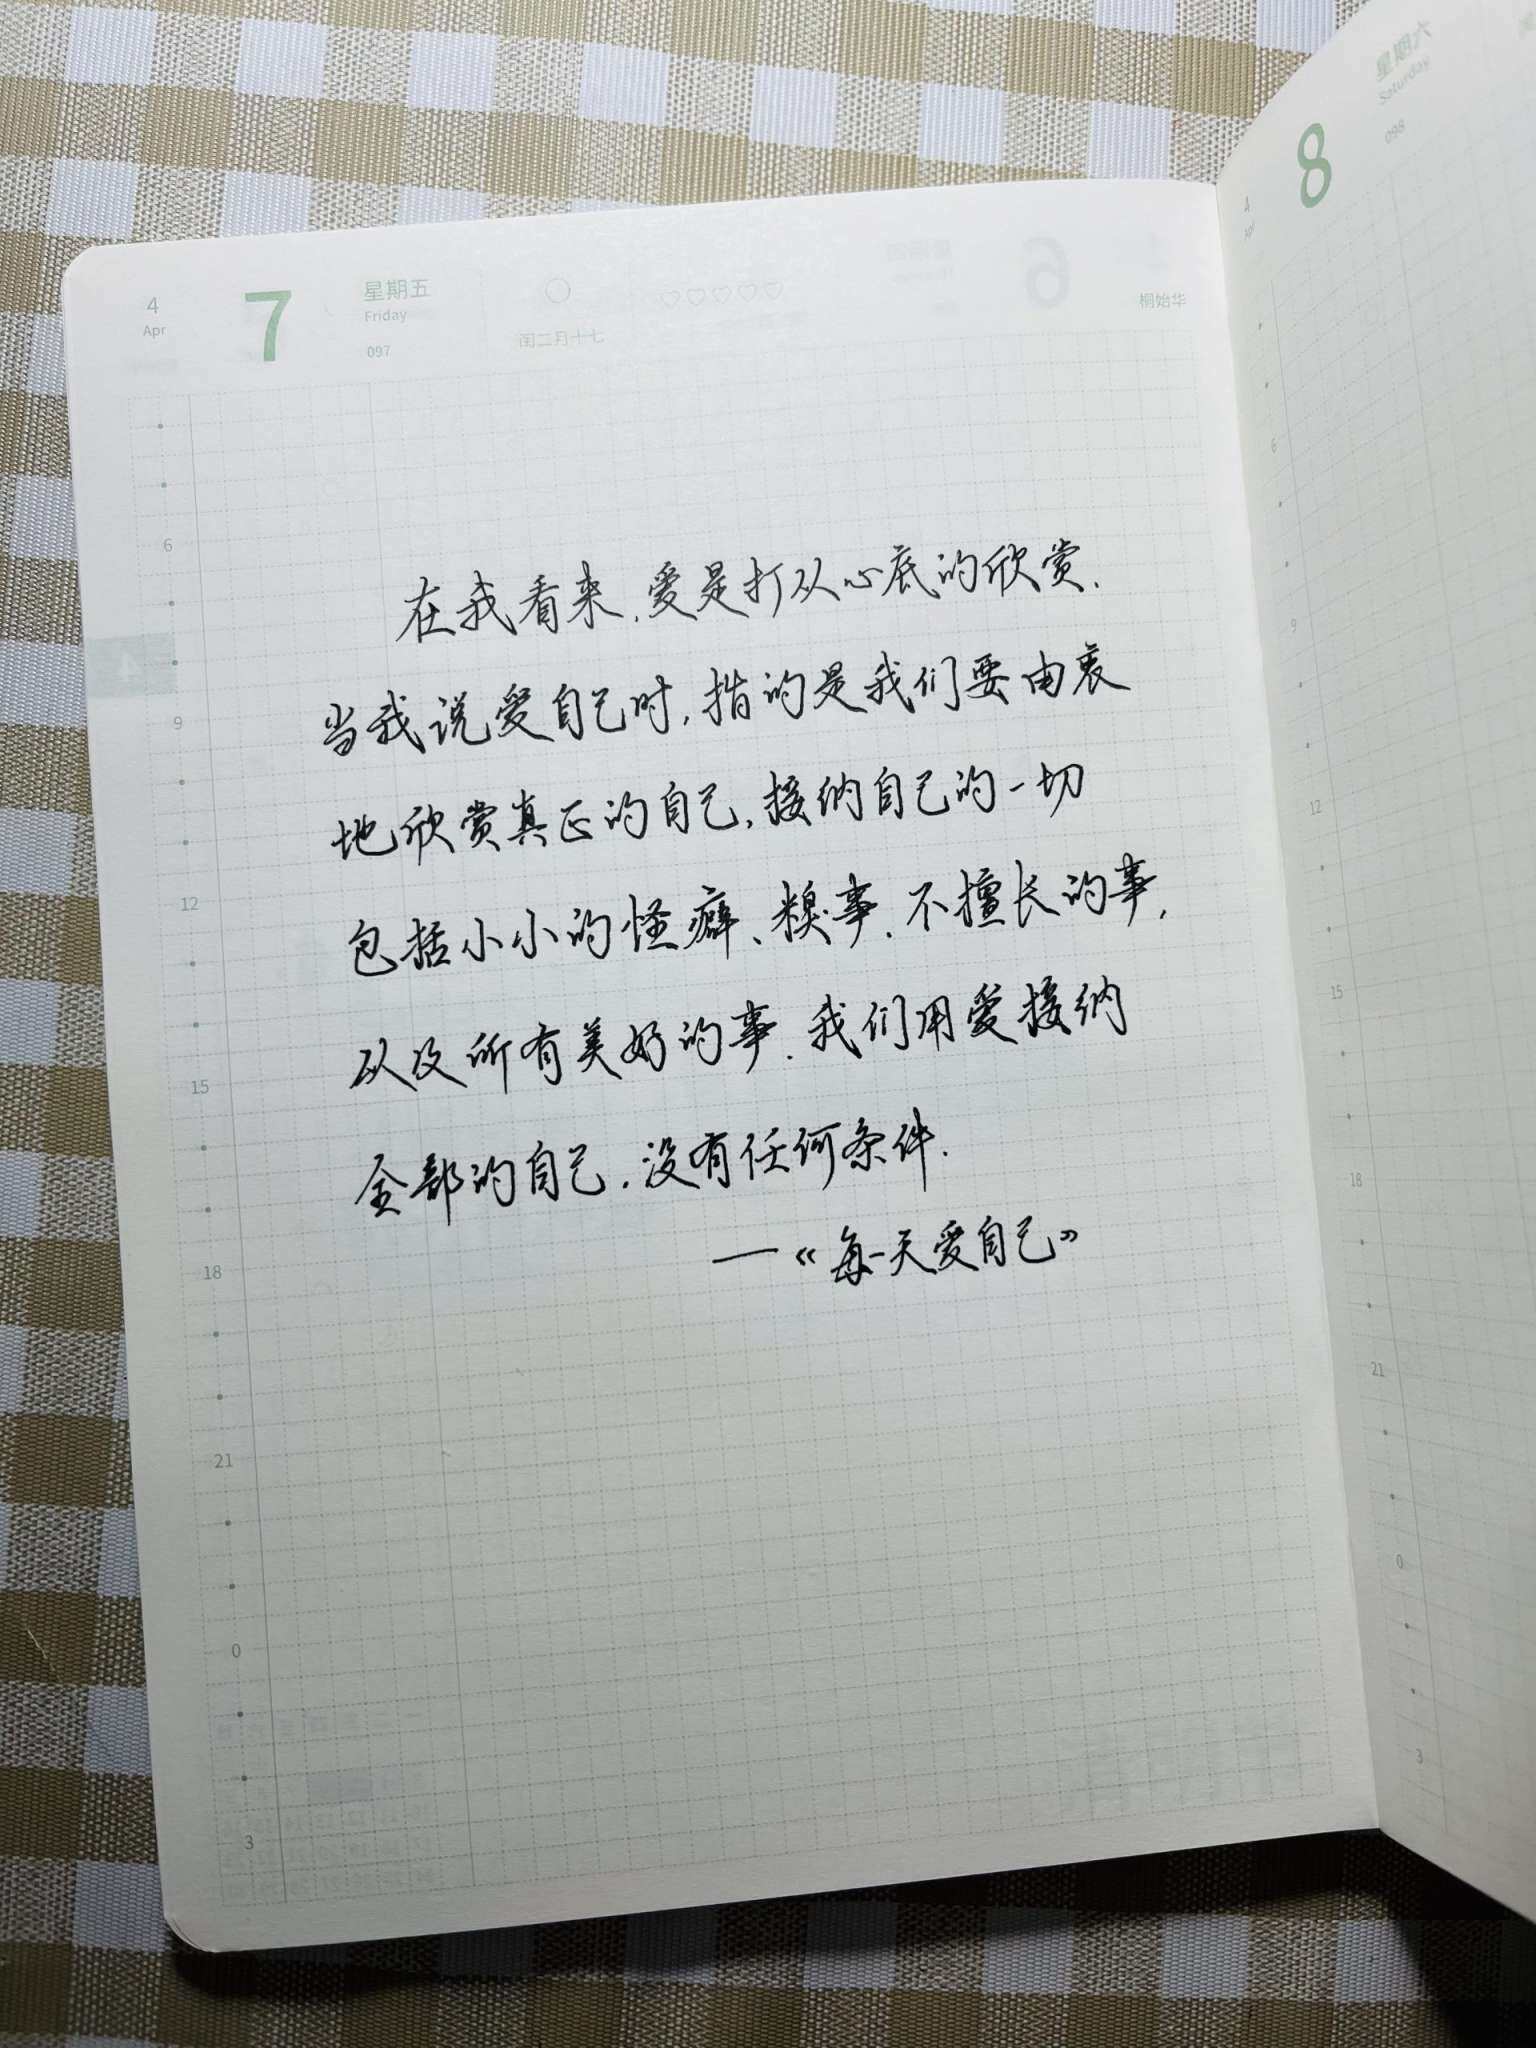 4
Apr
7
星期五
Friday
097
闰二月十七
桐始华
6
9
12
15
18
21
0
3
4
在我看来,爱是打从心底的欣赏.
当我说爱自己时,指的是我们要由衷
地欣赏真正的自己,接纳自己的一切
包括小小的怪癖、糗事、不擅长的事,
以及所有美好的事.我们用爱接纳
全部的自己.没有任何条件.
——《每一天爱自己》
星期六
Saturday
098
8
4
Apr
6
9
12
15
18
21
0
3